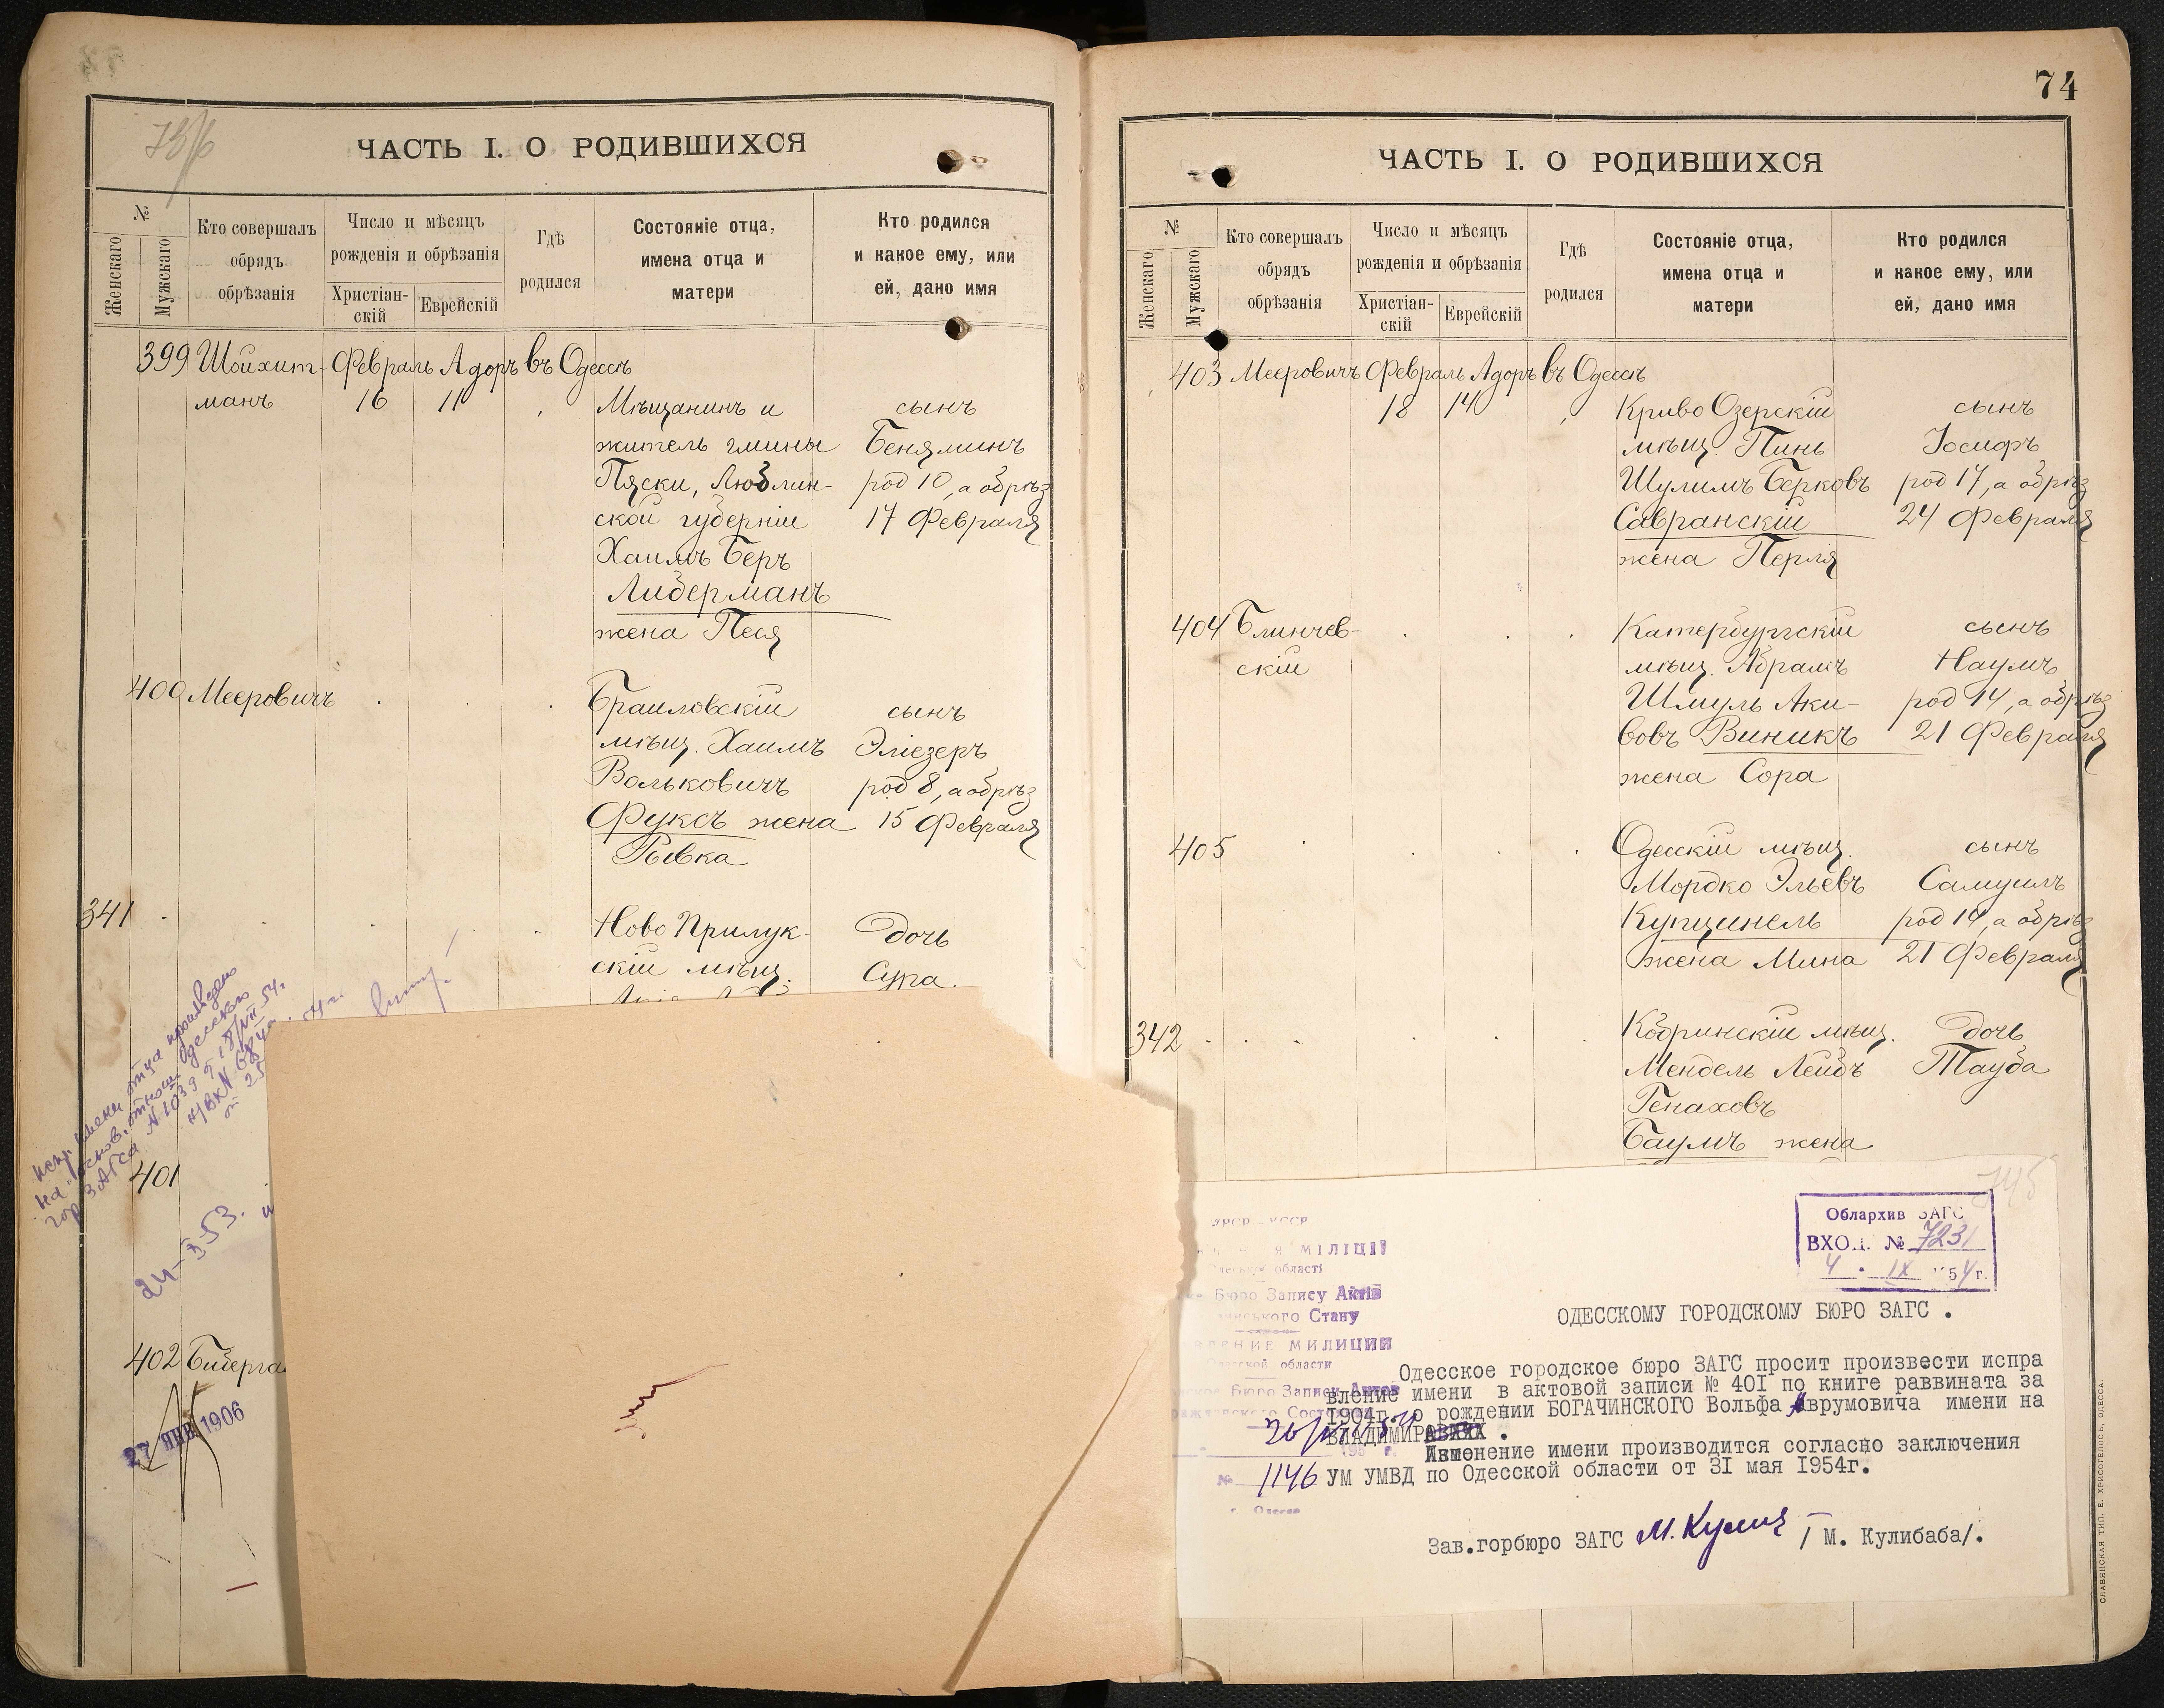 73/б
ЧАСТЬ I. О РОДИВШИХСЯ
№
Женскаго
Мужскаго
Кто совершалъ
обрядъ
обрѣзанія
Число и мѣсяцъ
рожденія и обрѣзанія
Христіан-
скій
Еврейскій
Гдѣ
родился
Состояніе отца,
имена отца и
матери
Кто родился
и какое ему, или
ей, дано имя
399 Шойхит- Февраль Адоръ въ Одессѣ
манъ 16 11 Мѣщанинъ и сынъ
житель гмины Беняминъ
Пяски, Люблин- род 10, а обрѣз
ской губерніи 17 Февраля
Хаимъ Беръ
Либерманъ
жена Песя
400 Мееровичъ Браиловскій сынъ
мѣщ. Хаимъ Эліезеръ
Вольковичъ род 8, а обрѣз
Фуксъ жена 15 Февраля
Рывка
341 Ново Прилук- дочь
скій мѣщ. Сура.
испр. имени отца произведено
на основ. отнош. Одесского
гор ЗАГСа № 1039 от 18/VII 54г.
401
24-I 53.
402
27 ЯНВ 1906
74
ЧАСТЬ I. О РОДИВШИХСЯ
№
Женскаго
Мужскаго
Кто совершалъ
обрядъ
обрѣзанія
Число и мѣсяцъ
рожденія и обрѣзанія
Христіан-
скій
Еврейскій
Гдѣ
родился
Состояніе отца,
имена отца и
матери
Кто родился
и какое ему, или
ей, дано имя
403 Мееровичъ Февраль Адоръ въ Одессѣ
18 14 Криво Озерскій сынъ
мѣщ. Пинь Іосифъ
Шулимъ Берковъ род 17, а обрѣз
Савранскій 24 Февраля
жена Перля
404 Блинчев- Катербургскій сынъ
скій мѣщ. Абрамъ Наумъ
Шмуль Аки- род 14, а обрѣз
вовъ Виникъ 21 Февраля
жена Сора
405 Одесскій мѣщ. сынъ
Мордко Эльевъ Самуилъ
Купцинель род 14, а обрѣз
жена Мина 21 Февраля
342 Кобринскій мѣщ. дочь
Мендель Лейбъ Тауба
Генаховъ
Баумъ жена
745
Облархив ЗАГС
ВХОД. № 7231
4 IX 1954 г.
УРСР - УССР
МІЛІЦІЇ
області
Бюро Запису Актів
Стану
МИЛИЦИИ
области
Бюро Записи Актов
№ 1146
ОДЕССКОМУ ГОРОДСКОМУ БЮРО ЗАГС .
Одесское городское бюро ЗАГС просит произвести испра
вление имени в актовой записи № 401 по книге раввината за
1904г. о рождении БОГАЧИНСКОГО Вольфа Аврумовича имени на
ВЛАДИМИР .
Изменение имени производится согласно заключения
УМ УМВД по Одесской области от 31 мая 1954г.
Зав.горбюро ЗАГС М. Кулиб / М. Кулибаба/.
СЛАВЯНСКАЯ ТИП. Е. ХРИСОГЕЛОСЪ, ОДЕССА.